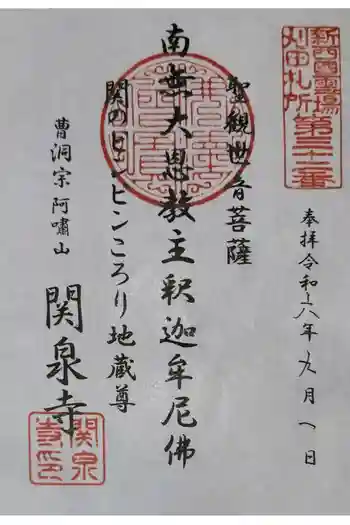 新西国霊場
刈田札所
第三十三番
奉拝 令和六年九月八日
聖観世音菩薩
南無大恩教主釈迦牟尼佛
関のピンピンころり地蔵尊
曹洞宗 阿嘯山
関泉寺
関泉
寺印